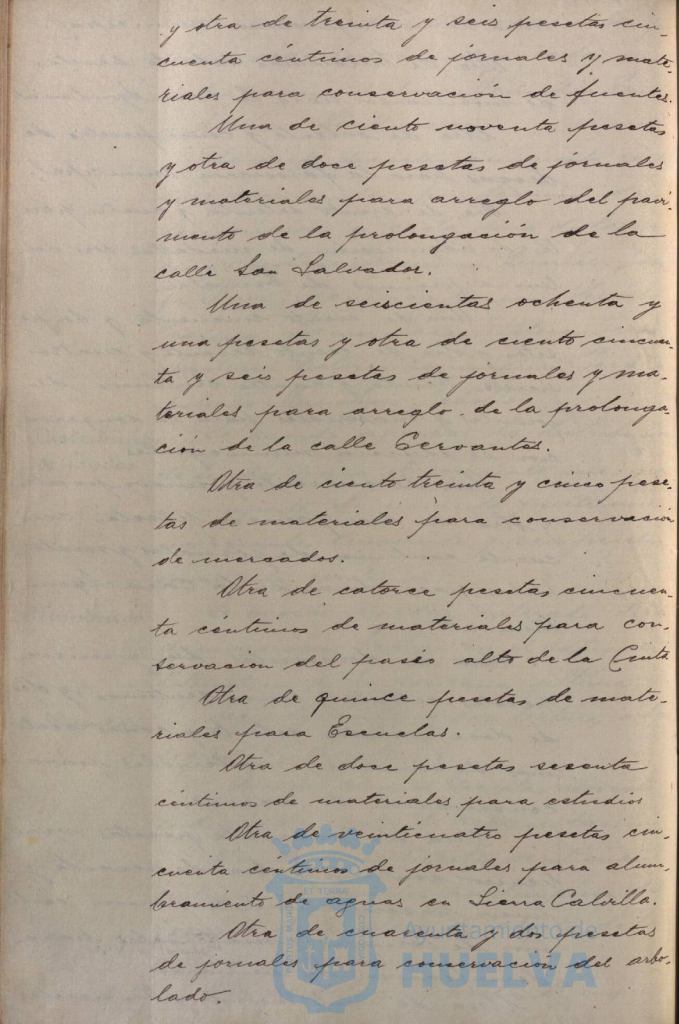 y otra de treinta y seis pesetas cin-
cuenta céntimos de jornales y mate-
riales para conservación de fuentes.
Una de ciento noventa pesetas
y otra de doce pesetas de jornales
y materiales para arreglo del pavi-
mento de la prolongación de la
calle San Salvador.
Una de seiscientas ochenta y
una pesetas y otra de ciento cincuen-
ta y seis pesetas de jornales y ma-
teriales para arreglo de la prolonga-
ción de la calle Cervantes.
Otra de ciento treinta y cinco pese-
tas de materiales para conservación
de mercados.
Otra de catorce pesetas cincuen-
ta céntimos de materiales para con-
servacion del paseo alto de la Cinta
Otra de quince pesetas de mate-
riales para Escuelas.
Otra de doce pesetas sesenta
céntimos de materiales para estudios
Otra de veinticuatro pesetas cin-
cuenta céntimos de jornales para alum-
bramiento de aguas en Sierra Calvilla.
Otra de cuarenta y dos pesetas
de jornales para conservacion del arbo-
lado.
Ayuntamiento de
HUELVA